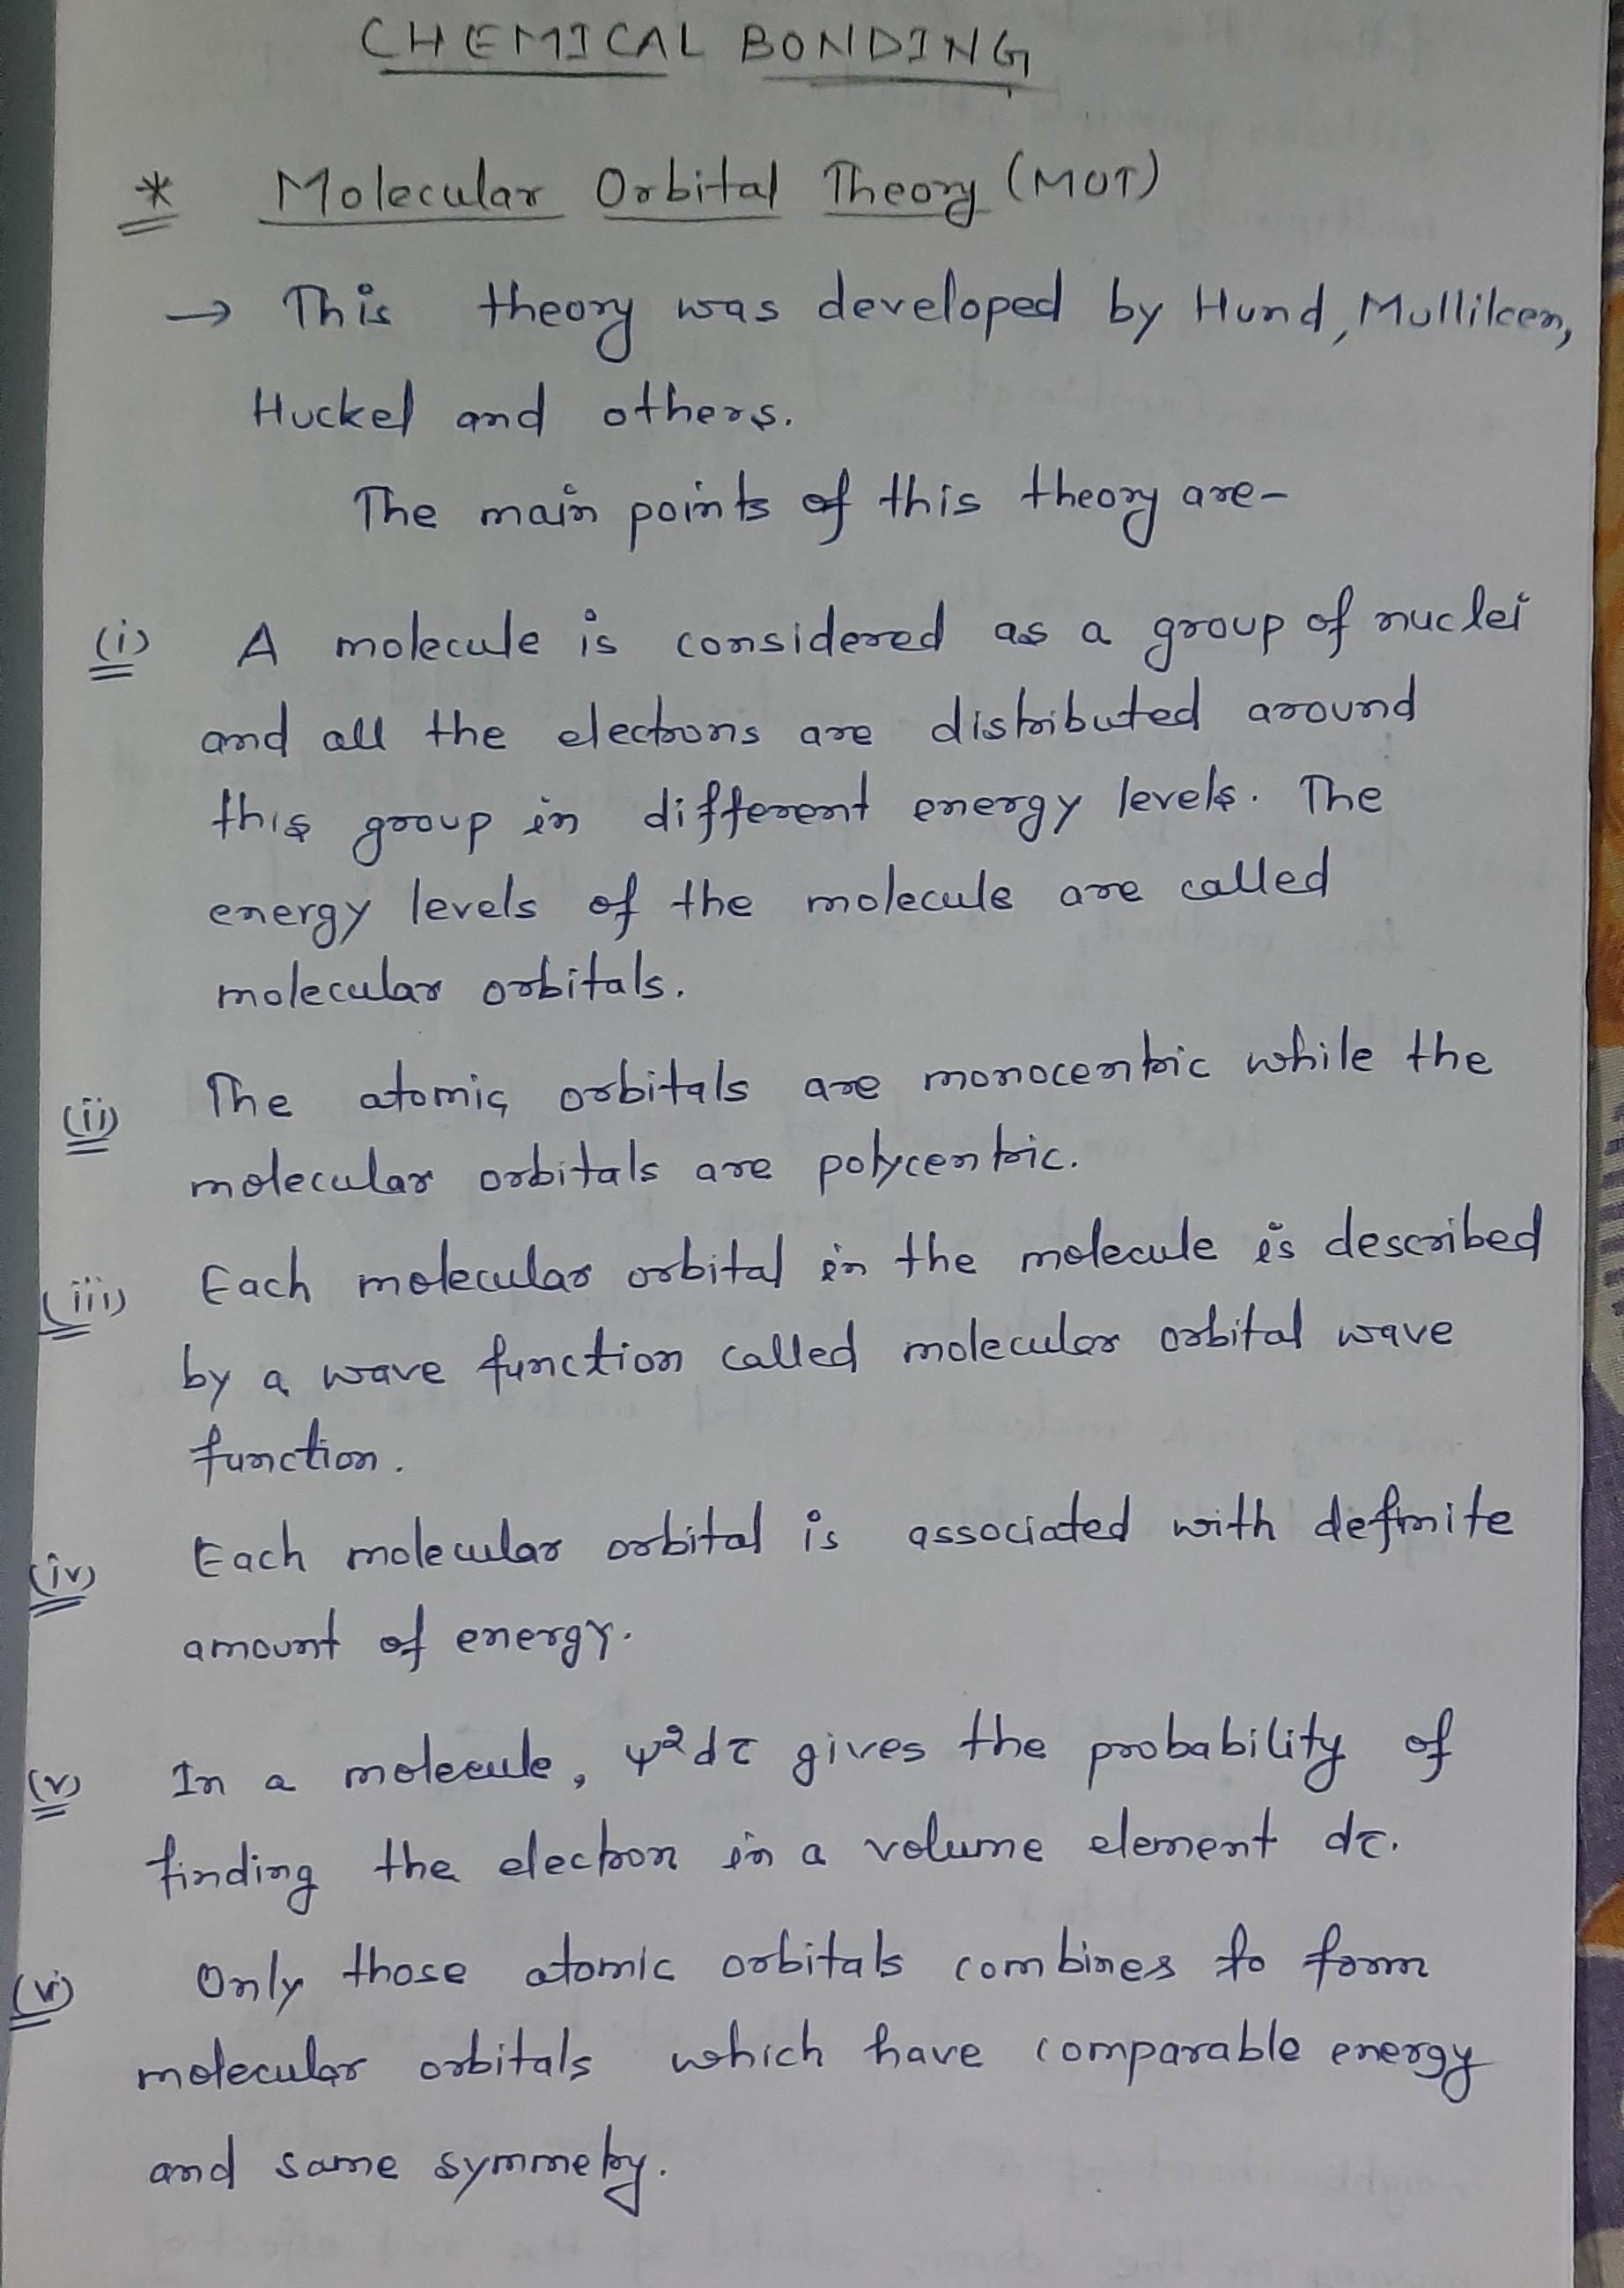 CHEMICAL BONDING
* Molecular Orbital Theory (MOT)
→ This theory was developed by Hund, Mulliken,
Huckel and others.
The main points of this theory are-
(i) A molecule is considered as a group of nuclei
and all the electrons are distributed around
this group in different energy levels. The
energy levels of the molecule are called
molecular orbitals.
(ii) The atomic orbitals are monocentric while the
molecular orbitals are polycentric.
(iii) Each molecular orbital in the molecule is described
by a wave function called molecular orbital wave
function.
(iv) Each molecular orbital is associated with definite
amount of energy.
(v) In a molecule, ψ²dτ gives the probability of
finding the electron in a volume element dτ.
(vi) Only those atomic orbitals combines to form
molecular orbitals which have comparable energy
and same symmetry.